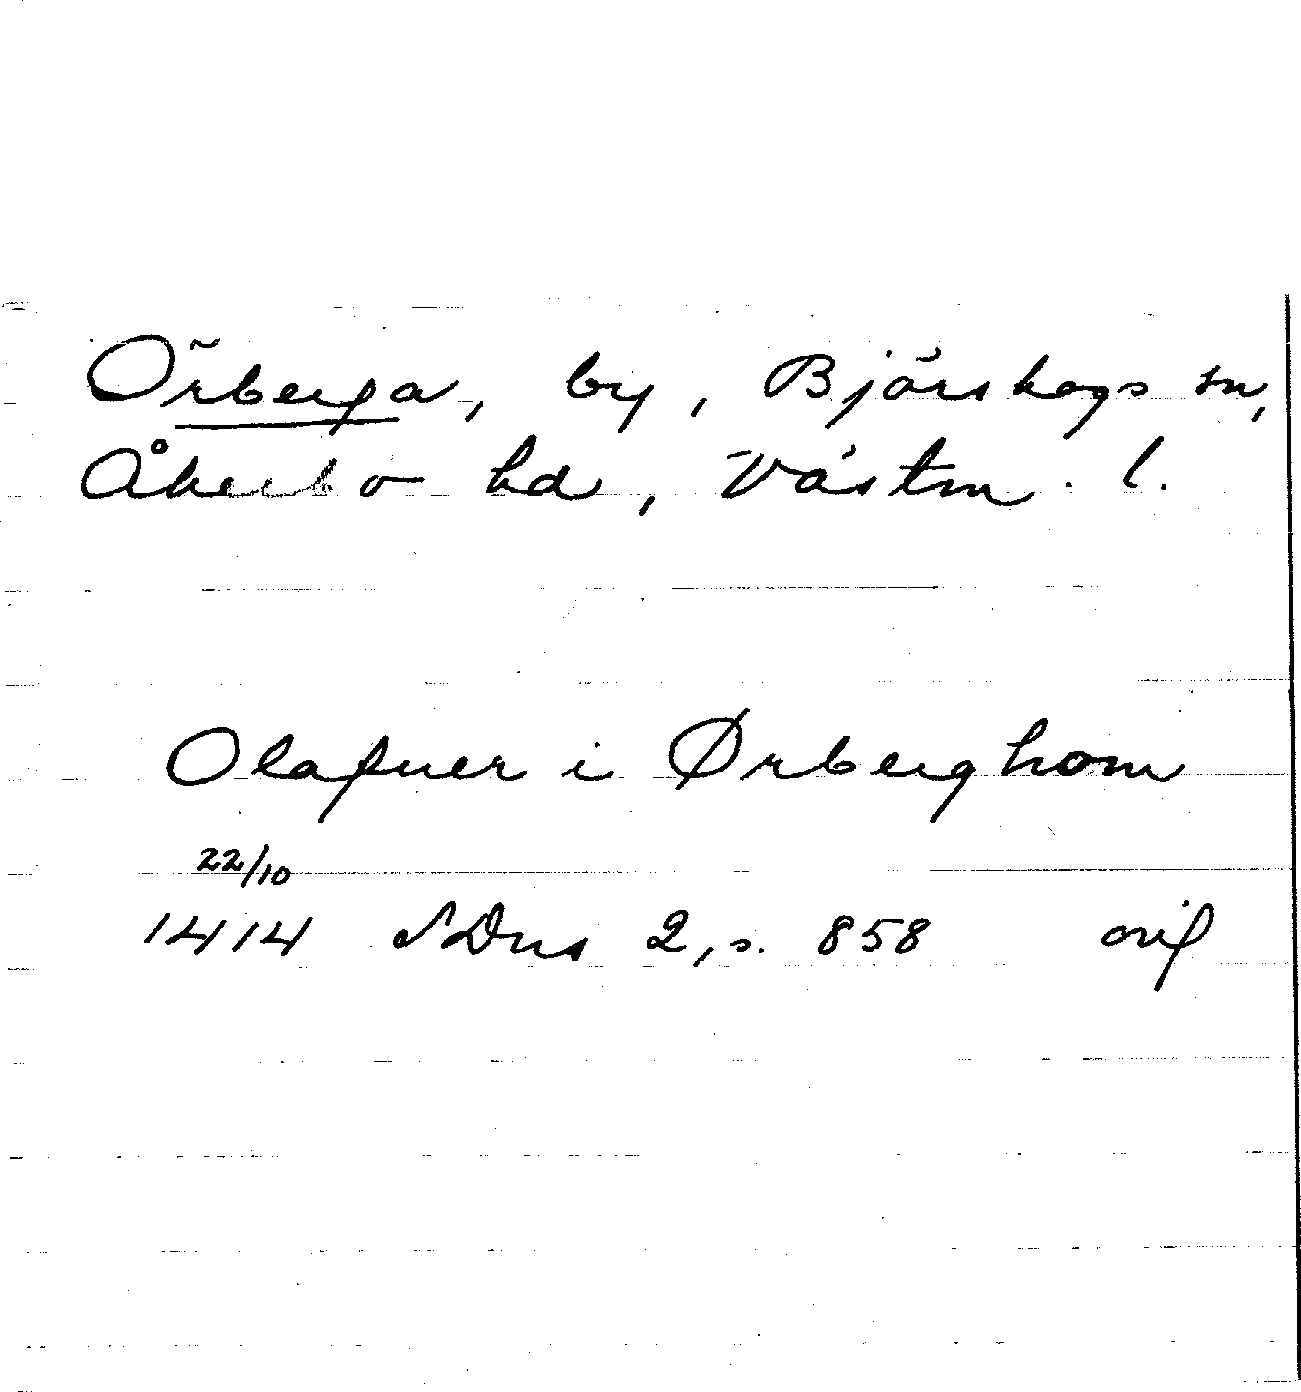 Örberga, by, Björskogs sn,
Åkerbo hd, Västm. l.
Olafuer i Ørberghom
22/10
1414 SDns 2, s. 858 orig